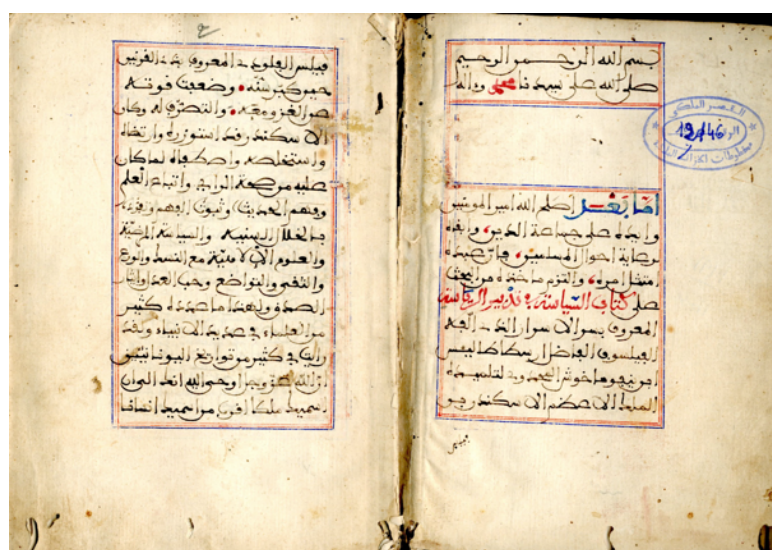 بسم الله الرحمن الرحيم
صلى الله على سيدنا محمد وءاله
القصر الملكي
12146
اما بعد اصلح الله امير المومنين
وايده على حماية الدين وابقاه
لرعاية احوال المسلمين فان عبده
امتثل امره والتزم ما حده من البحث
على كتاب السياسة في تدبير الرياسة
المعروف بسر الاسرار الذي الفه
الفيلسوف الفاضل ارسطاطاليس
لتلميذه
الملك الاعظم الاسكندر بن
فيلبس
فيلبس المعروف بذي القرنين
حين كبر سنه وضعفت قوته
عن الغزو معه والتصرف له وكان
الاسكندر قد استوزره وارتضاه
واستخلصه واصطفاه لما كان
عليه من صحة الراي واتباع العلم
وفهم الحديث وثبوت الفهم
بالخلال السنية والسياسة المرضية
والعلوم الالاهية مع النسك والورع
والتقى والتواضع وحب العدل وايثار
الصدق ولهذا ما عدده كثير
من العلماء في عديد الانبياء ولقد
رايت في كثير من تواريخ اليونانيين
ان الله عز وجل اوحى الله اليه ان
اسميك ملكا اقرب من اسميك انسانا